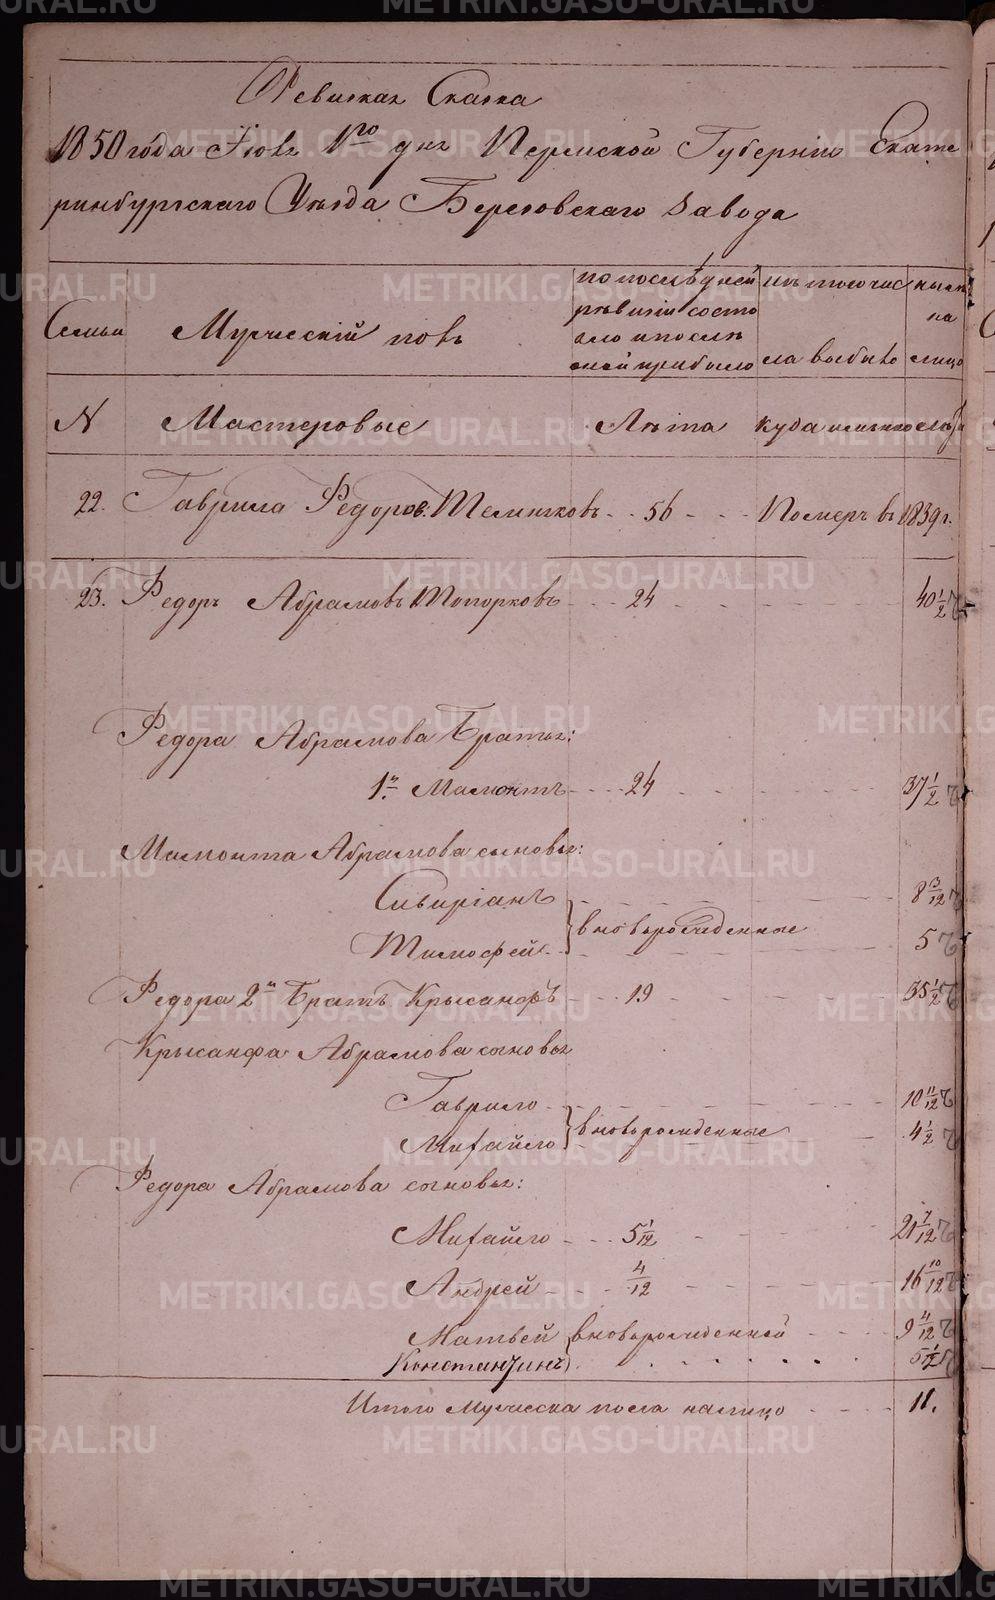 Ревизкая Сказка
1850 года Июля 1го дня Пермской Губерніи Екате
ринбургскаго Уѣзда Березовскаго Завода
Семьи
Мужескій полъ
по послѣдней
ревизіи состо
яло и послѣ
оной прибыло
изъ того чис
ла выбыло
нынѣ
на
лицо
N Мастеровые Лѣта куда именно
22. Гаврила Федоров. 56 Померъ въ 1839 г.
23. Федоръ Абрамовъ Топорковъ 24 40 1/2
Федора Абрамова Братья:
1й Мамонтъ 24 37 1/2
Мамонта Абрамова сыновья:
Сивиріанъ 8 3/12
вновьрожденные
Тимофей 5
Федора 2й Братъ Крысанфъ 19 35 1/2
Крысанфа Абрамова сыновья
Гаврило 10 11/12
вноворожденные
Михайло 4 1/2
Федора Абрамова сыновья:
Михайло 5 1/12 21 7/12
Андрей 4/12 16 10/12
Матвей вноворожденной 9 4/12
Константинъ 5 1/12
Итого Мужеска пола налицо 11.
METRIKI.GASO-URAL.RU